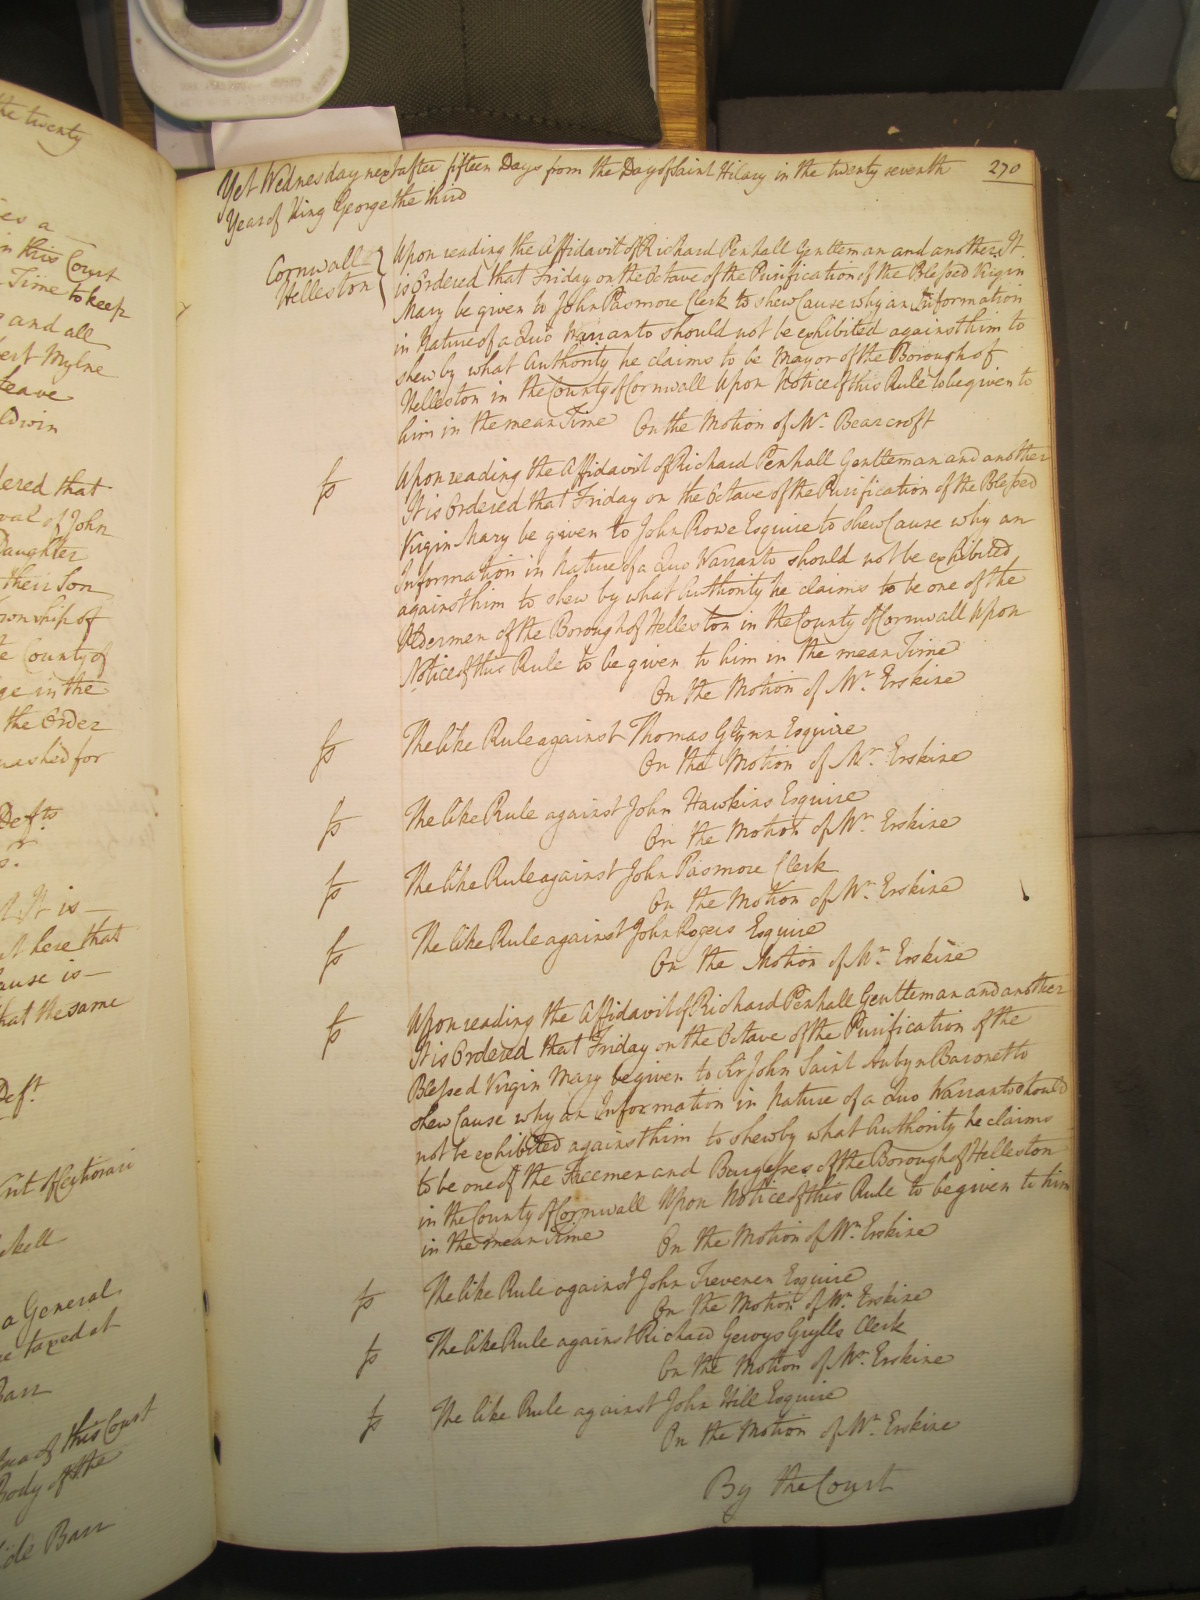 the twenty
es a
in this Court
Time to keep
and all
bert Mylne
Leave
ldwin
dered that
val of John
Daughter
their Son
ownship of
e County of
ge in the
the Order
uashed for
Deft.s
It is
t here that
ause is
hat the same
Deft.
Writ of Certiorari
a General
e taxed at
Barr
of this Court
Body of the
Side Barr
Yet Wednesday next after fifteen Days from the Day of Saint Hilary in the twenty seventh 270
Year of King George the third
Cornwall
Helleston
Upon reading the Affidavit of Richard Penhall Gentleman and another It
is Ordered that Friday on the Octave of the Purification of the Blessed Virgin
Mary be given to John Pasmore Clerk to shew Cause why an Information
in Nature of a Quo Warranto should not be exhibited against him to
shew by what Authority he claims to be Mayor of the Borough of
Helleston in the County of Cornwall Upon Notice of this Rule to be given to
him in the mean Time On the Motion of Mr. Bearcroft
ss Upon reading the Affidavit of Richard Penhall Gentleman and another
It is Ordered that Friday on the Octave of the Purification of the Blessed
Virgin Mary be given to John Rowe Esquire to shew Cause why an
Information in Nature of a Quo Warranto should not be exhibited
against him to shew by what Authority he claims to be one of the
Aldermen of the Borough of Helleston in the County of Cornwall Upon
Notice of this Rule to be given to him in the mean Time
On the Motion of Mr. Erskine
ss The like Rule against Thomas Glynn Esquire
On the Motion of Mr. Erskine
ss The like Rule against John Hawkins Esquire
On the Motion of Mr. Erskine
ss The like Rule against John Pasmore Clerk
On the Motion of Mr. Erskine
ss The like Rule against John Rogers Esquire
On the Motion of Mr. Erskine
ss Upon reading the Affidavit of Richard Penhall Gentleman and another
It is Ordered that Friday on the Octave of the Purification of the
Blessed Virgin Mary be given to Sir John Saint Aubyn Baronet to
shew Cause why an Information in Nature of a Quo Warranto should
not be exhibited against him to shew by what Authority he claims
to be one of the Freemen and Burgesses of the Borough of Helleston
in the County of Cornwall Upon Notice of this Rule to be given to him
in the mean Time On the Motion of Mr. Erskine
ss The like Rule against John Trevenen Esquire
On the Motion of Mr. Erskine
ss The like Rule against Richard Gervys Grylls Clerk
On the Motion of Mr. Erskine
ss The like Rule against John Hill Esquire
On the Motion of Mr. Erskine
By the Court